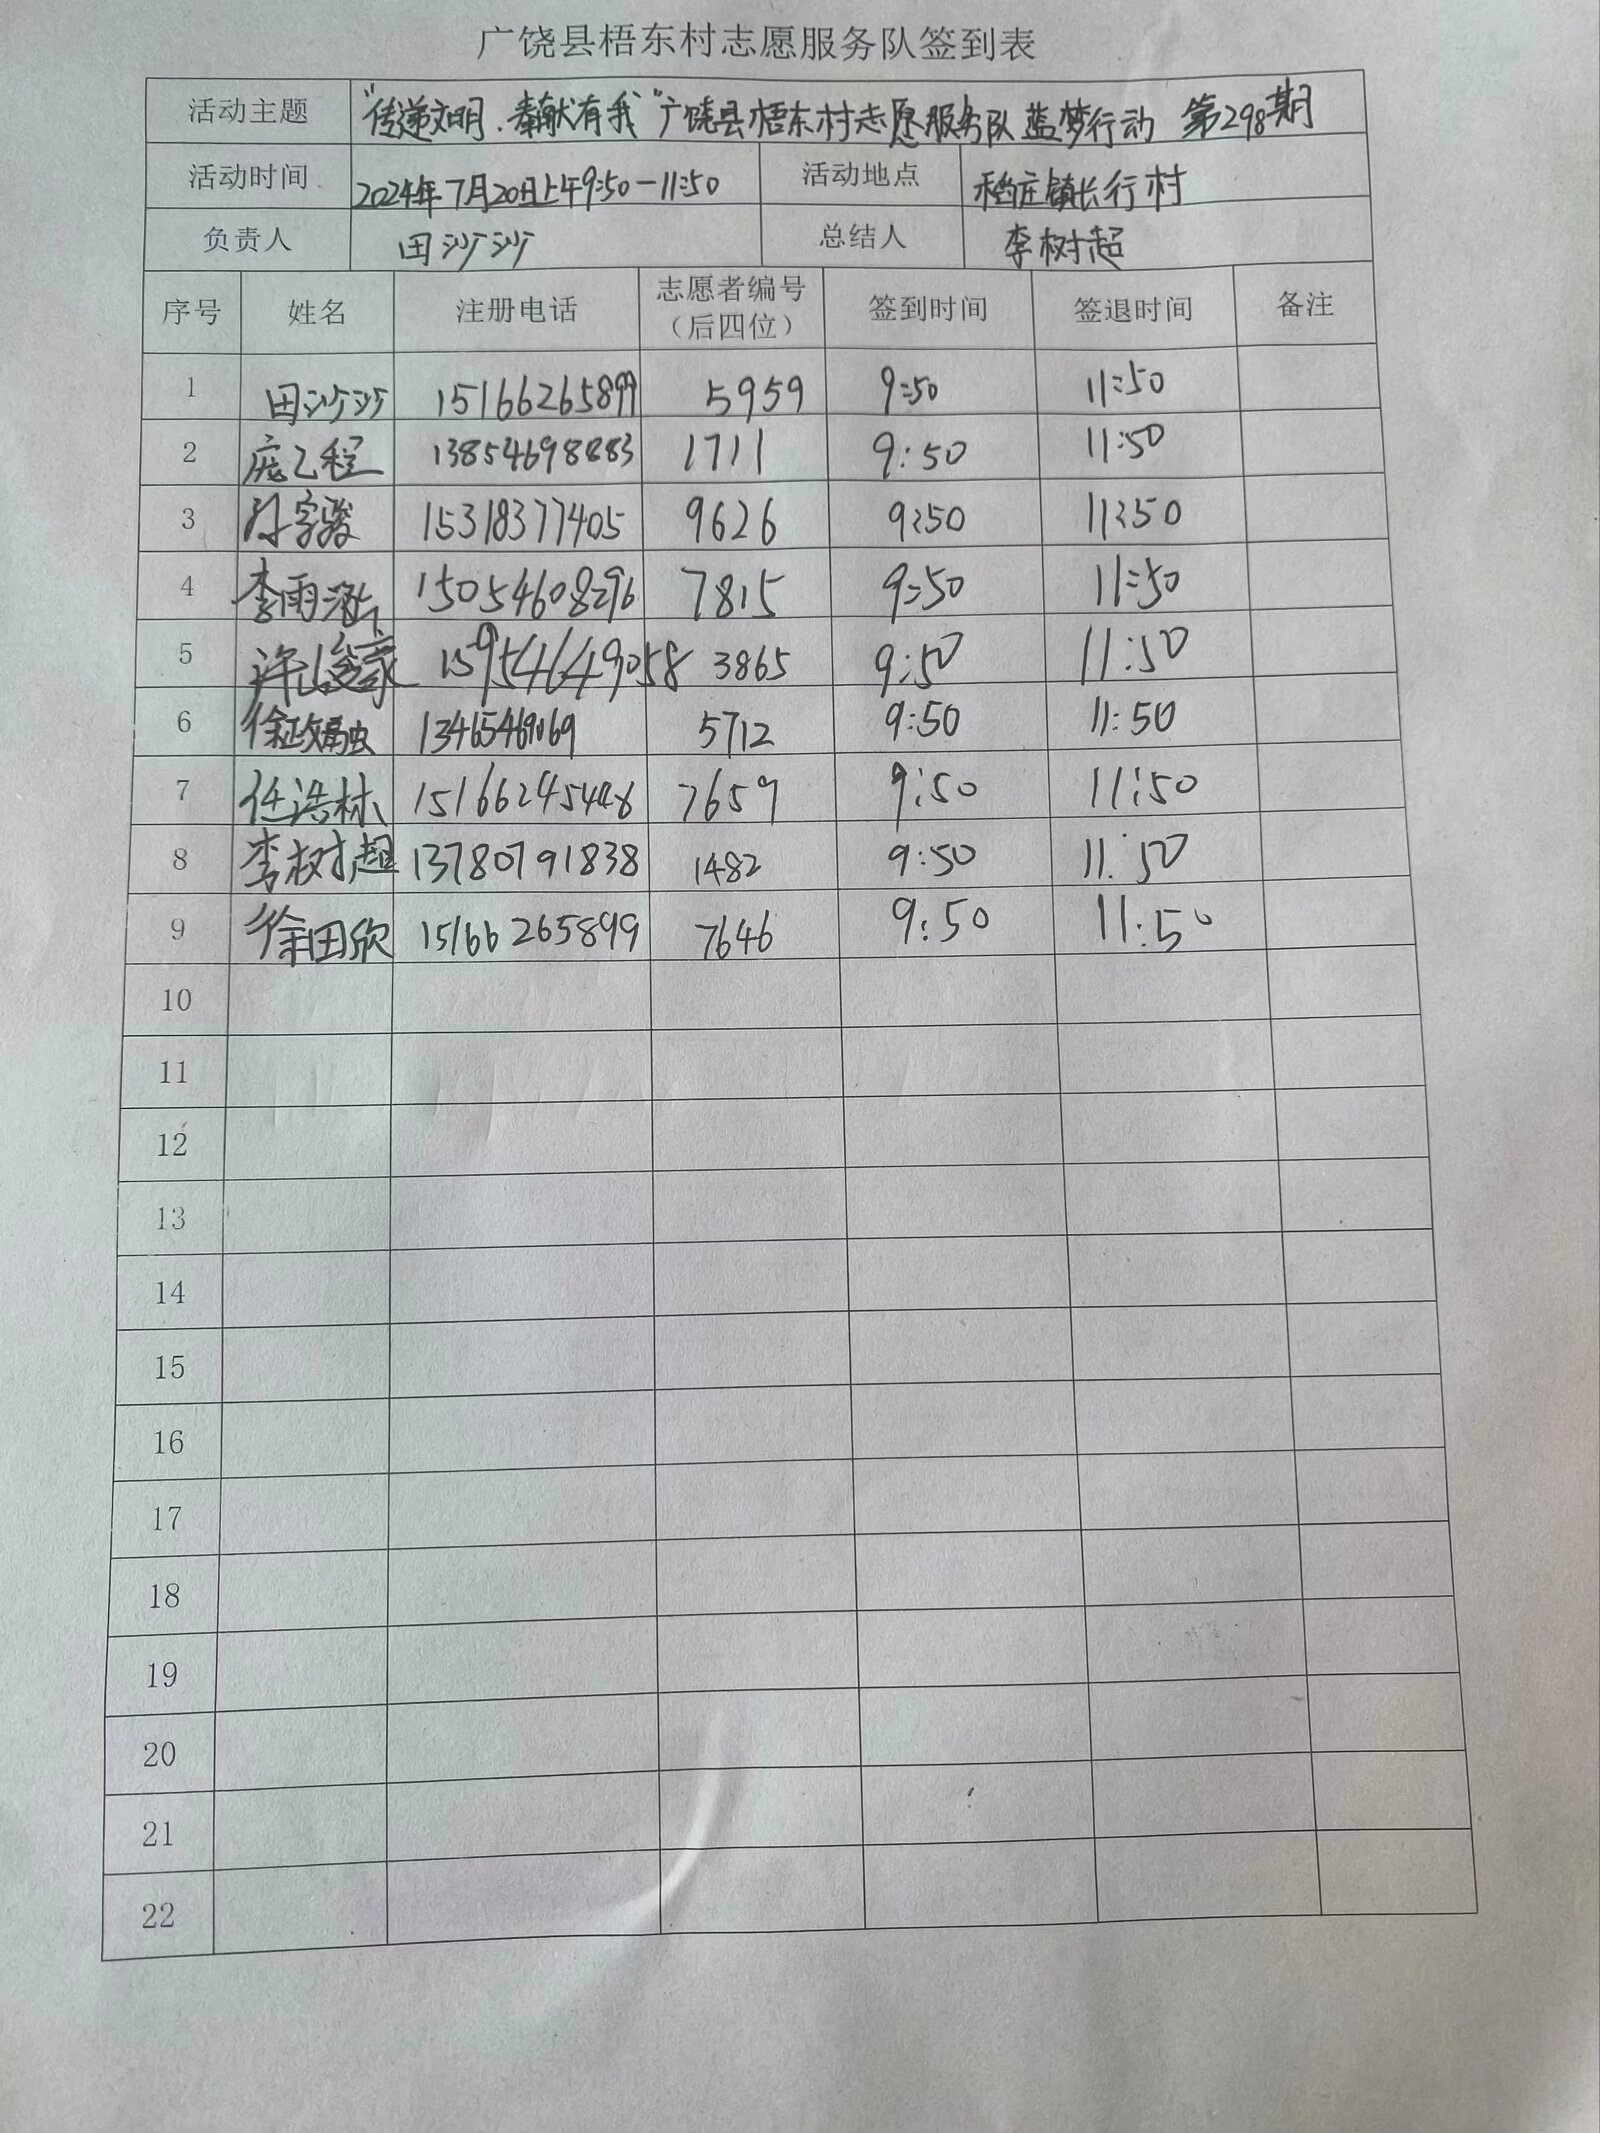 广饶县梧东村志愿服务队签到表
活动主题 "传递文明.奉献有我"广饶县梧东村志愿服务队蓝梦行动 第298期
活动时间 2024年7月20日上午9:50-11:50 活动地点 稻庄镇长行村
负责人 田沙沙 总结人 李树超
序号 姓名 注册电话 志愿者编号(后四位) 签到时间 签退时间 备注
1 田沙沙 15166265899 5959 9:50 11:50
2 庞乙程 13854698883 1711 9:50 11:50
3 15318377405 9626 9:50 11:50
4 李雨涵 15054608296 7815 9:50 11:50
5 许峻豪 15954649058 3865 9:50 11:50
6 徐政融 13465469069 5712 9:50 11:50
7 任浩林 7659 9:50 11:50
8 李树超 13780791838 1482 9:50 11:50
9 徐田欣 15166265899 7646 9:50 11:50
10
11
12
13
14
15
16
17
18
19
20
21
22